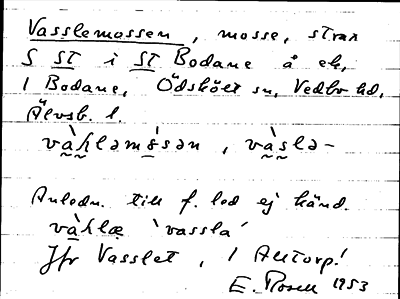 Vasslemossen, mosse, strax
S St i St Bodane å ek,
1 Bodane, Ödskölt sn, Vedbo hd,
Älvsb. l.
vàʂləmòsən, vàslə-
Anledn. till f. led ej känd.
vàʂlæ 'vassla'
Jfr Vasslet, 1 Attorp!
E. Rosell 1953